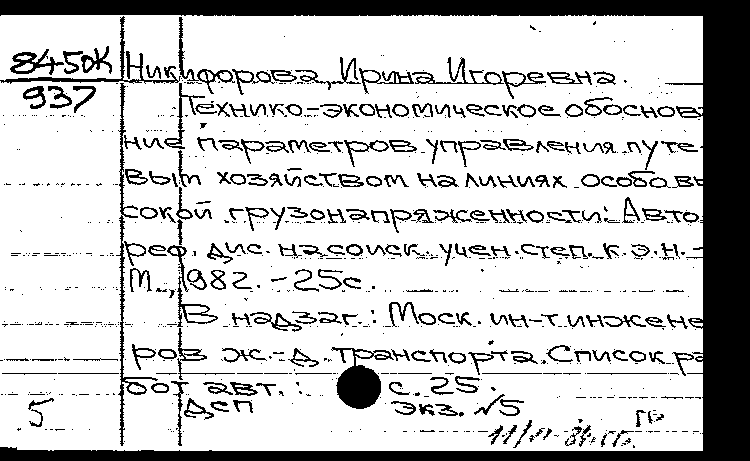 845ОК Никифорова, Ирина Игоревна.
937 Технико-экономическое обоснова
ние параметров управления путе-
вым хозяйством на линиях особо вы
сокой грузонапряженности: Авто
реф. дис. на соиск. учен. степ. к.э.н. -
М., 1982. - 25с.
В надзаг.: Моск. ин-т инжене
ров ж.-д. транспорта. Список ра
бот авт.: с. 25.
5 ДСП экз. №5